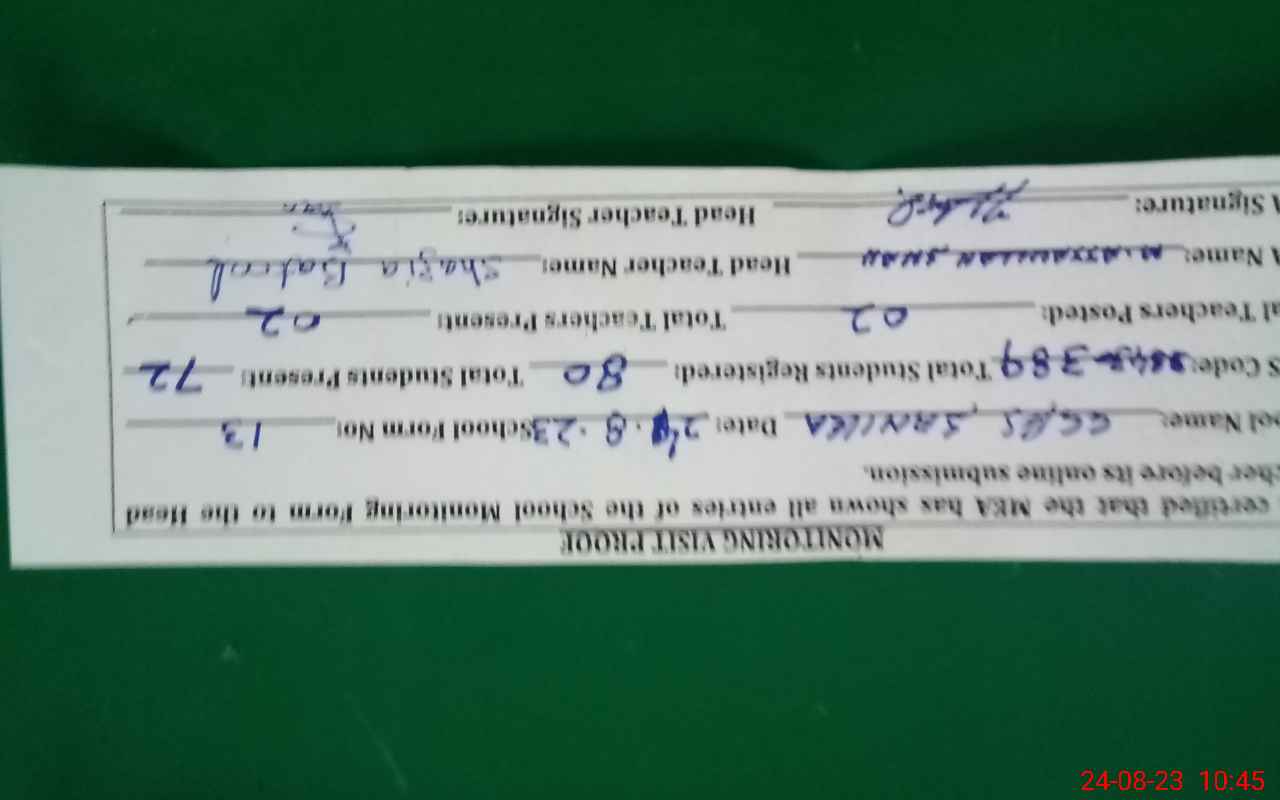 MONITORING VISIT PROOF
certified that the MEA has shown all entries of the School Monitoring Form to the Head
cher before its online submission.
ool Name: GGPS, SANILRA Date: 24.8.23 School Form No: 13
S Code: 389 Total Students Registered: 80 Total Students Present: 72
al Teachers Posted: 02 Total Teachers Present: 02
A Name: SHAH Head Teacher Name: Shazia Batool
A Signature: Head Teacher Signature:
24-08-23 10:45